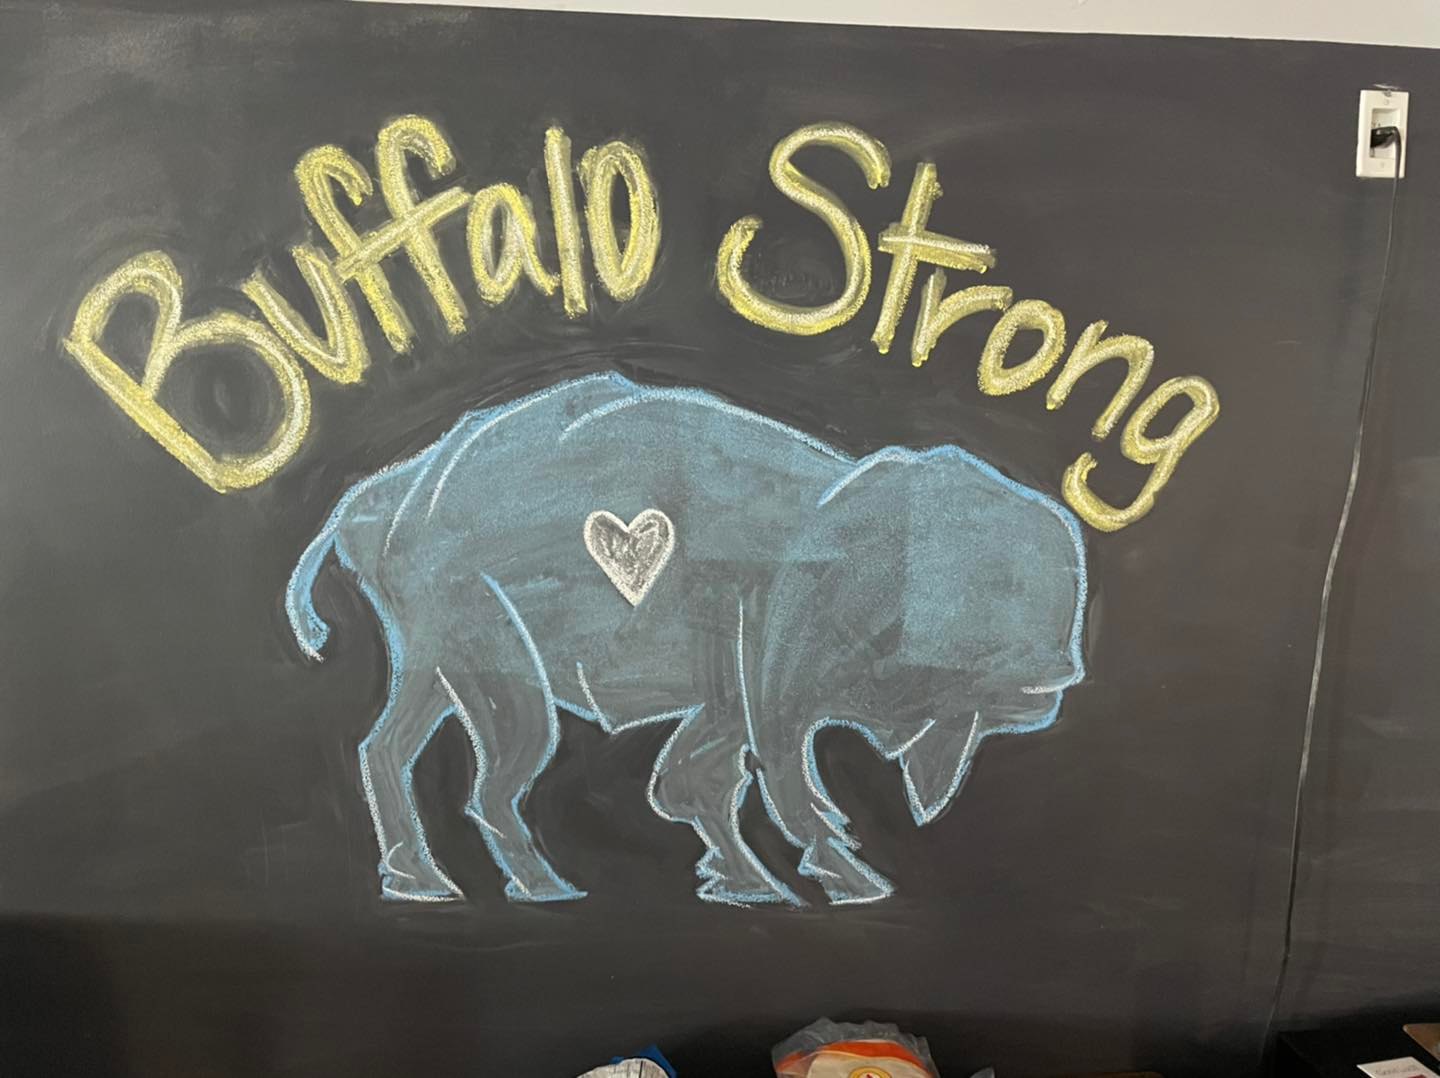 Buffalo Strong